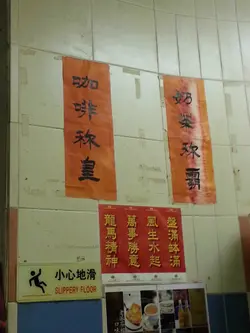 咖啡称皇
奶茶称霸
盤滿鉢滿
風生水起
萬事勝意
龍馬精神
小心地滑
SLIPPERY FLOOR